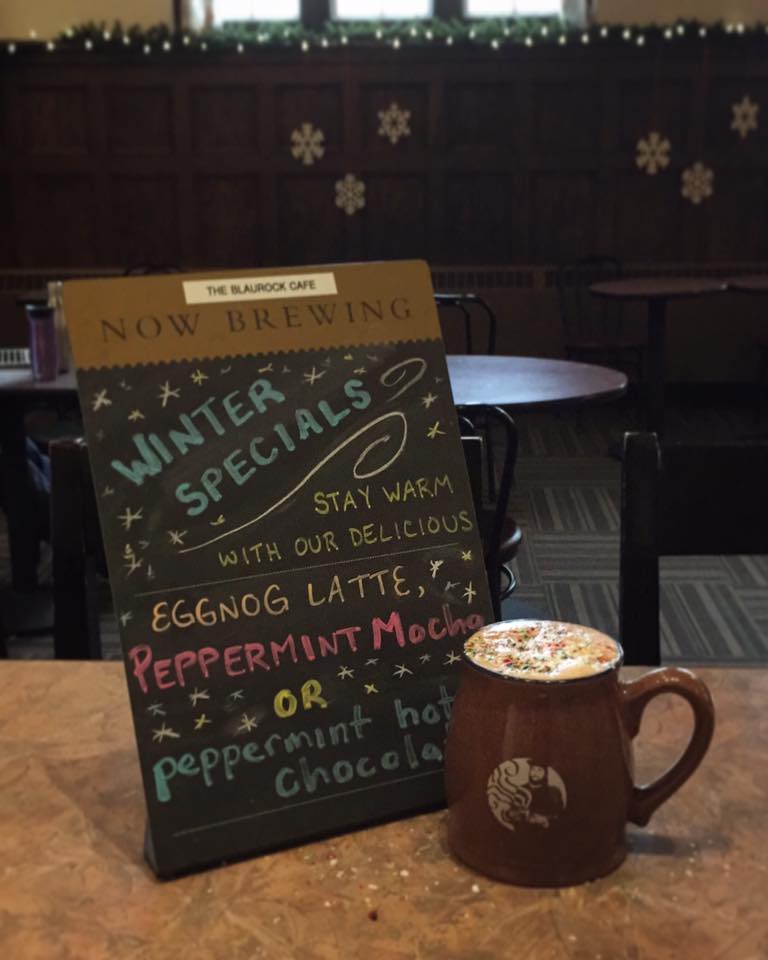 THE BLAUROCK CAFE
NOW BREWING
WINTER
SPECIALS
STAY WARM
WITH OUR DELICIOUS
EGGNOG LATTE,
PEPPERMINT Mocha
OR
peppermint hot
chocola